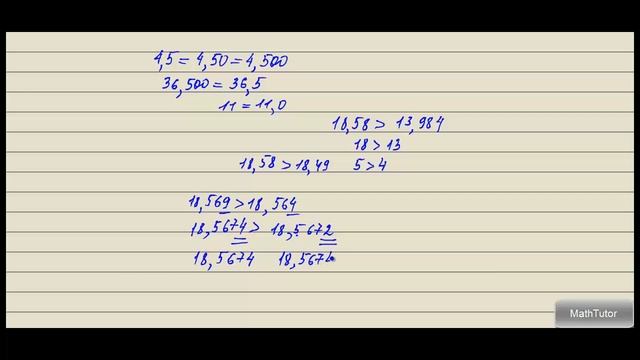 4,5 = 4,50 = 4,500
36,500 = 36,5
11 = 11,0
18,58 > 13,984
18 > 13
18,58 > 18,49 5 > 4
18,569 > 18,564
18,5674 > 18,5672
18,5674 18,5674
MathTutor